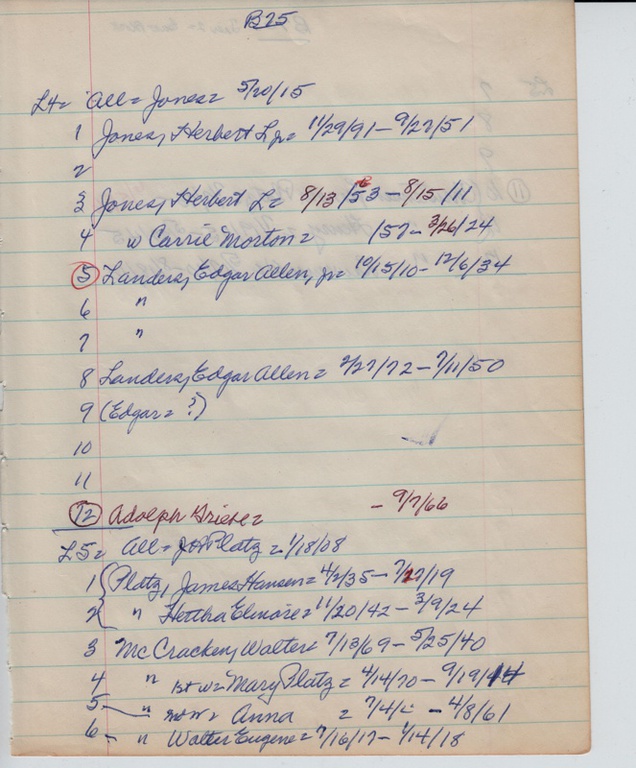 B25
L4= All= Jones= 5/20/15
1 Jones, Herbert L jr= 11/29/91 - 9/27/51
2
3 Jones, Herbert L= 8/13/53 - 8/15/11
4 w Carrie Morton= /57 - 3/26/24
5 Landers, Edgar Allen, jr= 10/15/10 - 12/6/34
6 "
7 "
8 Landers, Edgar Allen= 2/27/72 - 7/11/50
9 (Edgar= ?)
10
11
12 Adolph Griese= - 9/7/66
L5= All= Platz= 1/18/08
1 Platz, James Hansen= 4/2/35 - /19
2 " Hettha Elinore= 11/20/42 - 3/9/24
3 McCracken, Walter= 7/13/69 - 5/25/40
4 " 1st w= Mary Platz= 4/14/70 - 9/19/
5 " w= Anna = 7/4/- - 4/8/61
6 - " Walter Eugene= 7/16/17 - 1/14/18